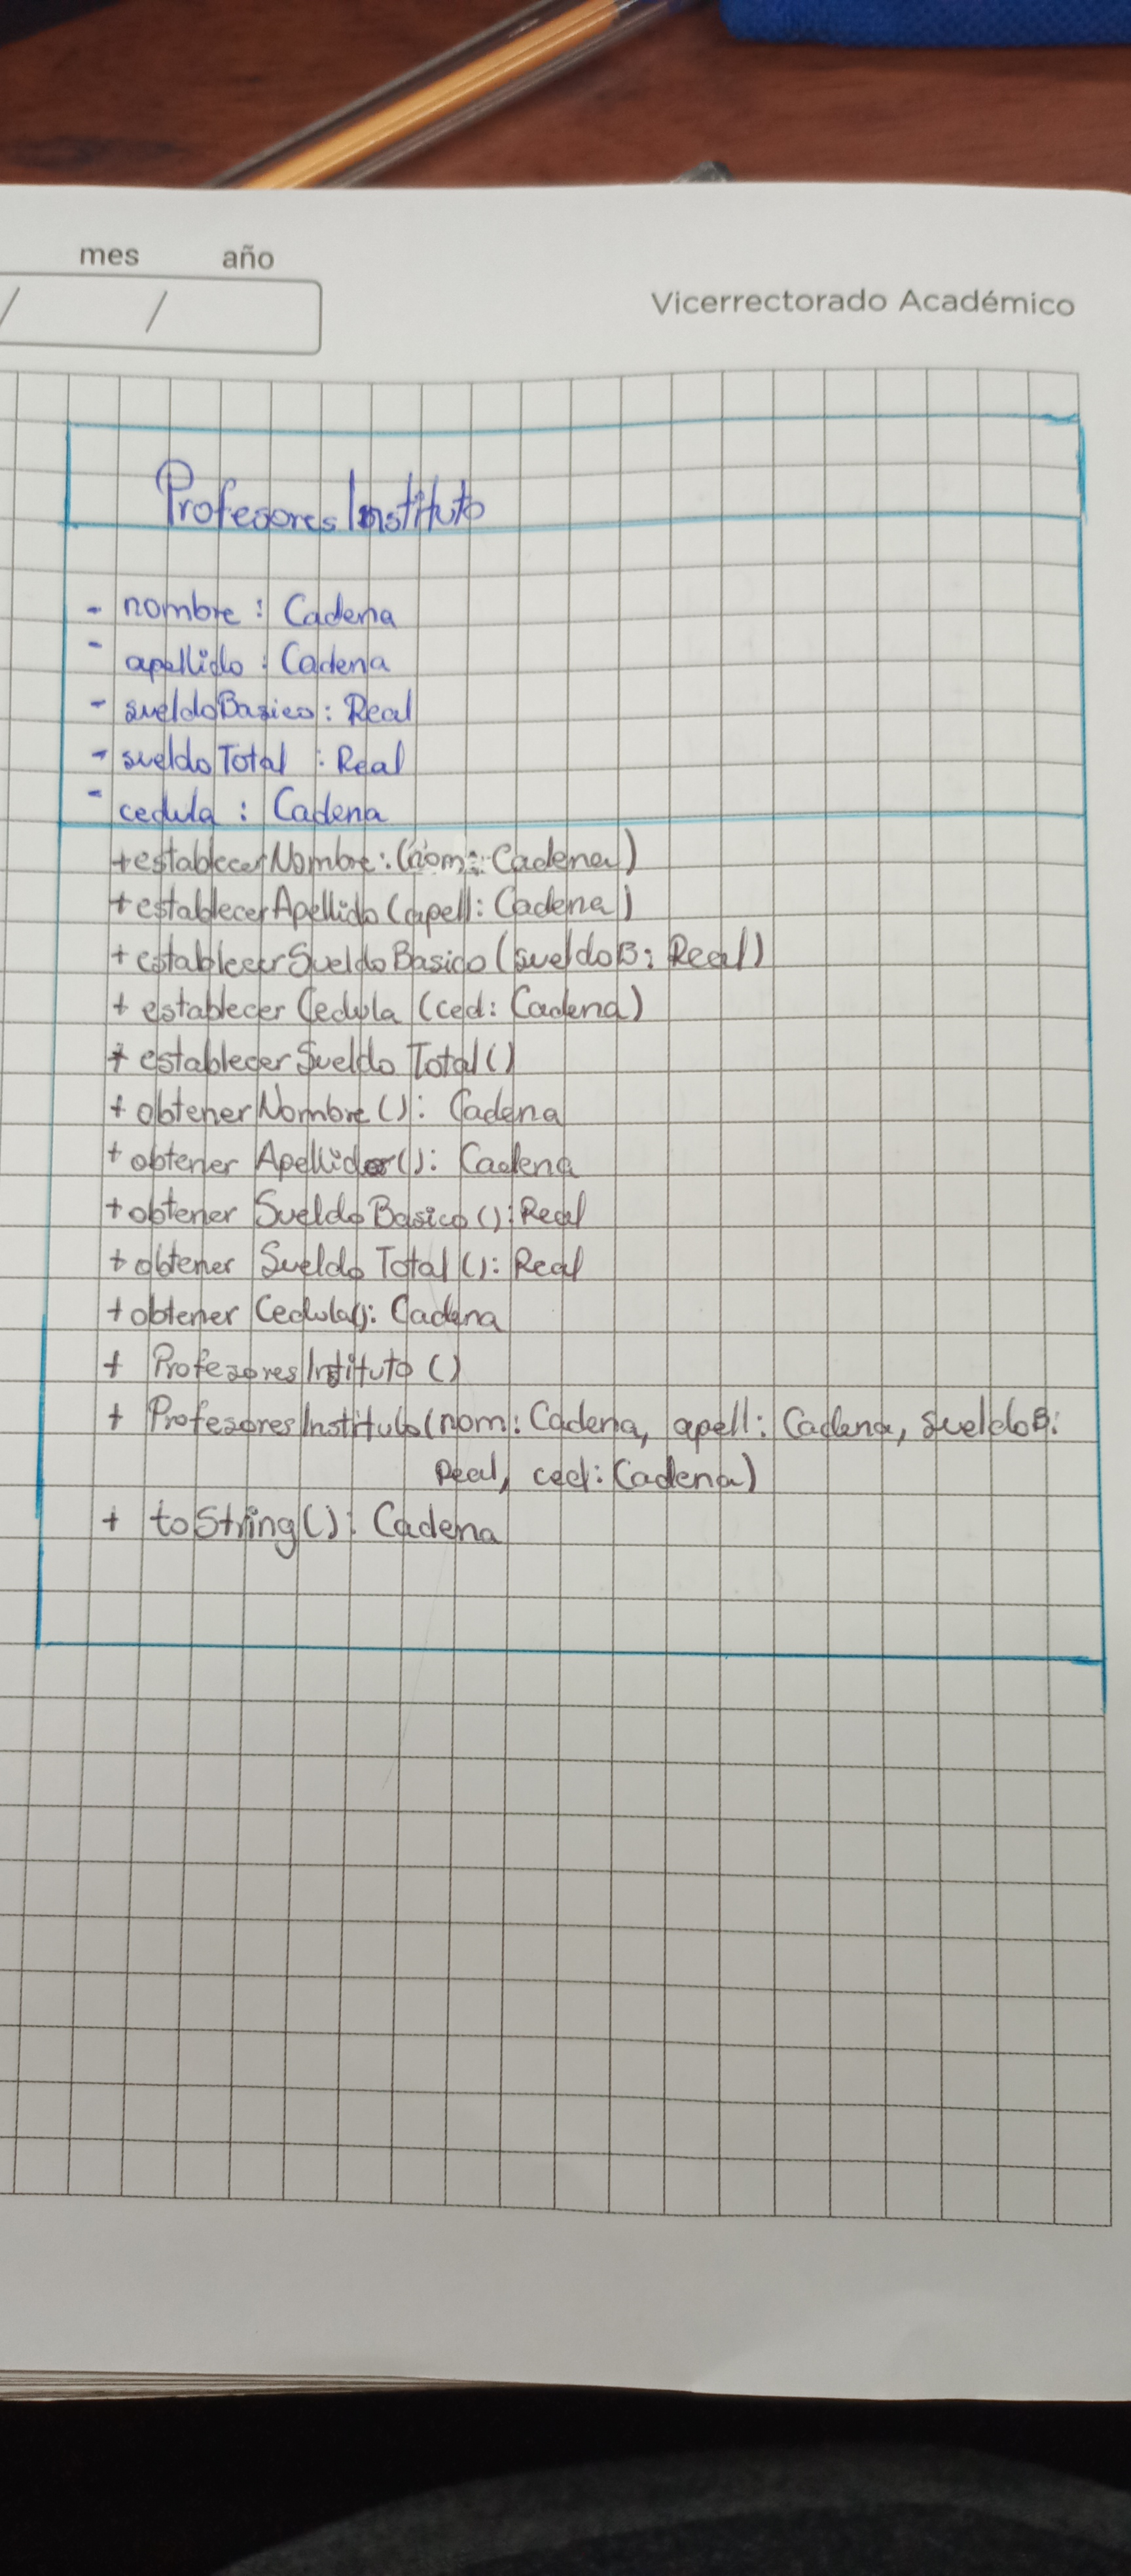 mes año
/ /
Vicerrectorado Académico
Profesores Instituto
- nombre : Cadena
- apellido : Cadena
- sueldoBasico : Real
- sueldo Total : Real
- cedula : Cadena
+establecerNombre:(nom: Cadena)
+establecerApellido (apell: Cadena)
+establecerSueldoBasico (sueldoB: Real)
+ establecer Cedula (ced: Cadena)
+ establecer Sueldo Total ()
+ obtenerNombre (): Cadena
+ obtener Apellido(): Cadena
+ obtener Sueldo Basico (): Real
+ obtener Sueldo Total (): Real
+ obtener Cedula(): Cadena
+ ProfesoresInstituto ()
+ ProfesoresInstituto(nom: Cadena, apell: Cadena, sueldoB:
Real, ced: Cadena)
+ toString(): Cadena